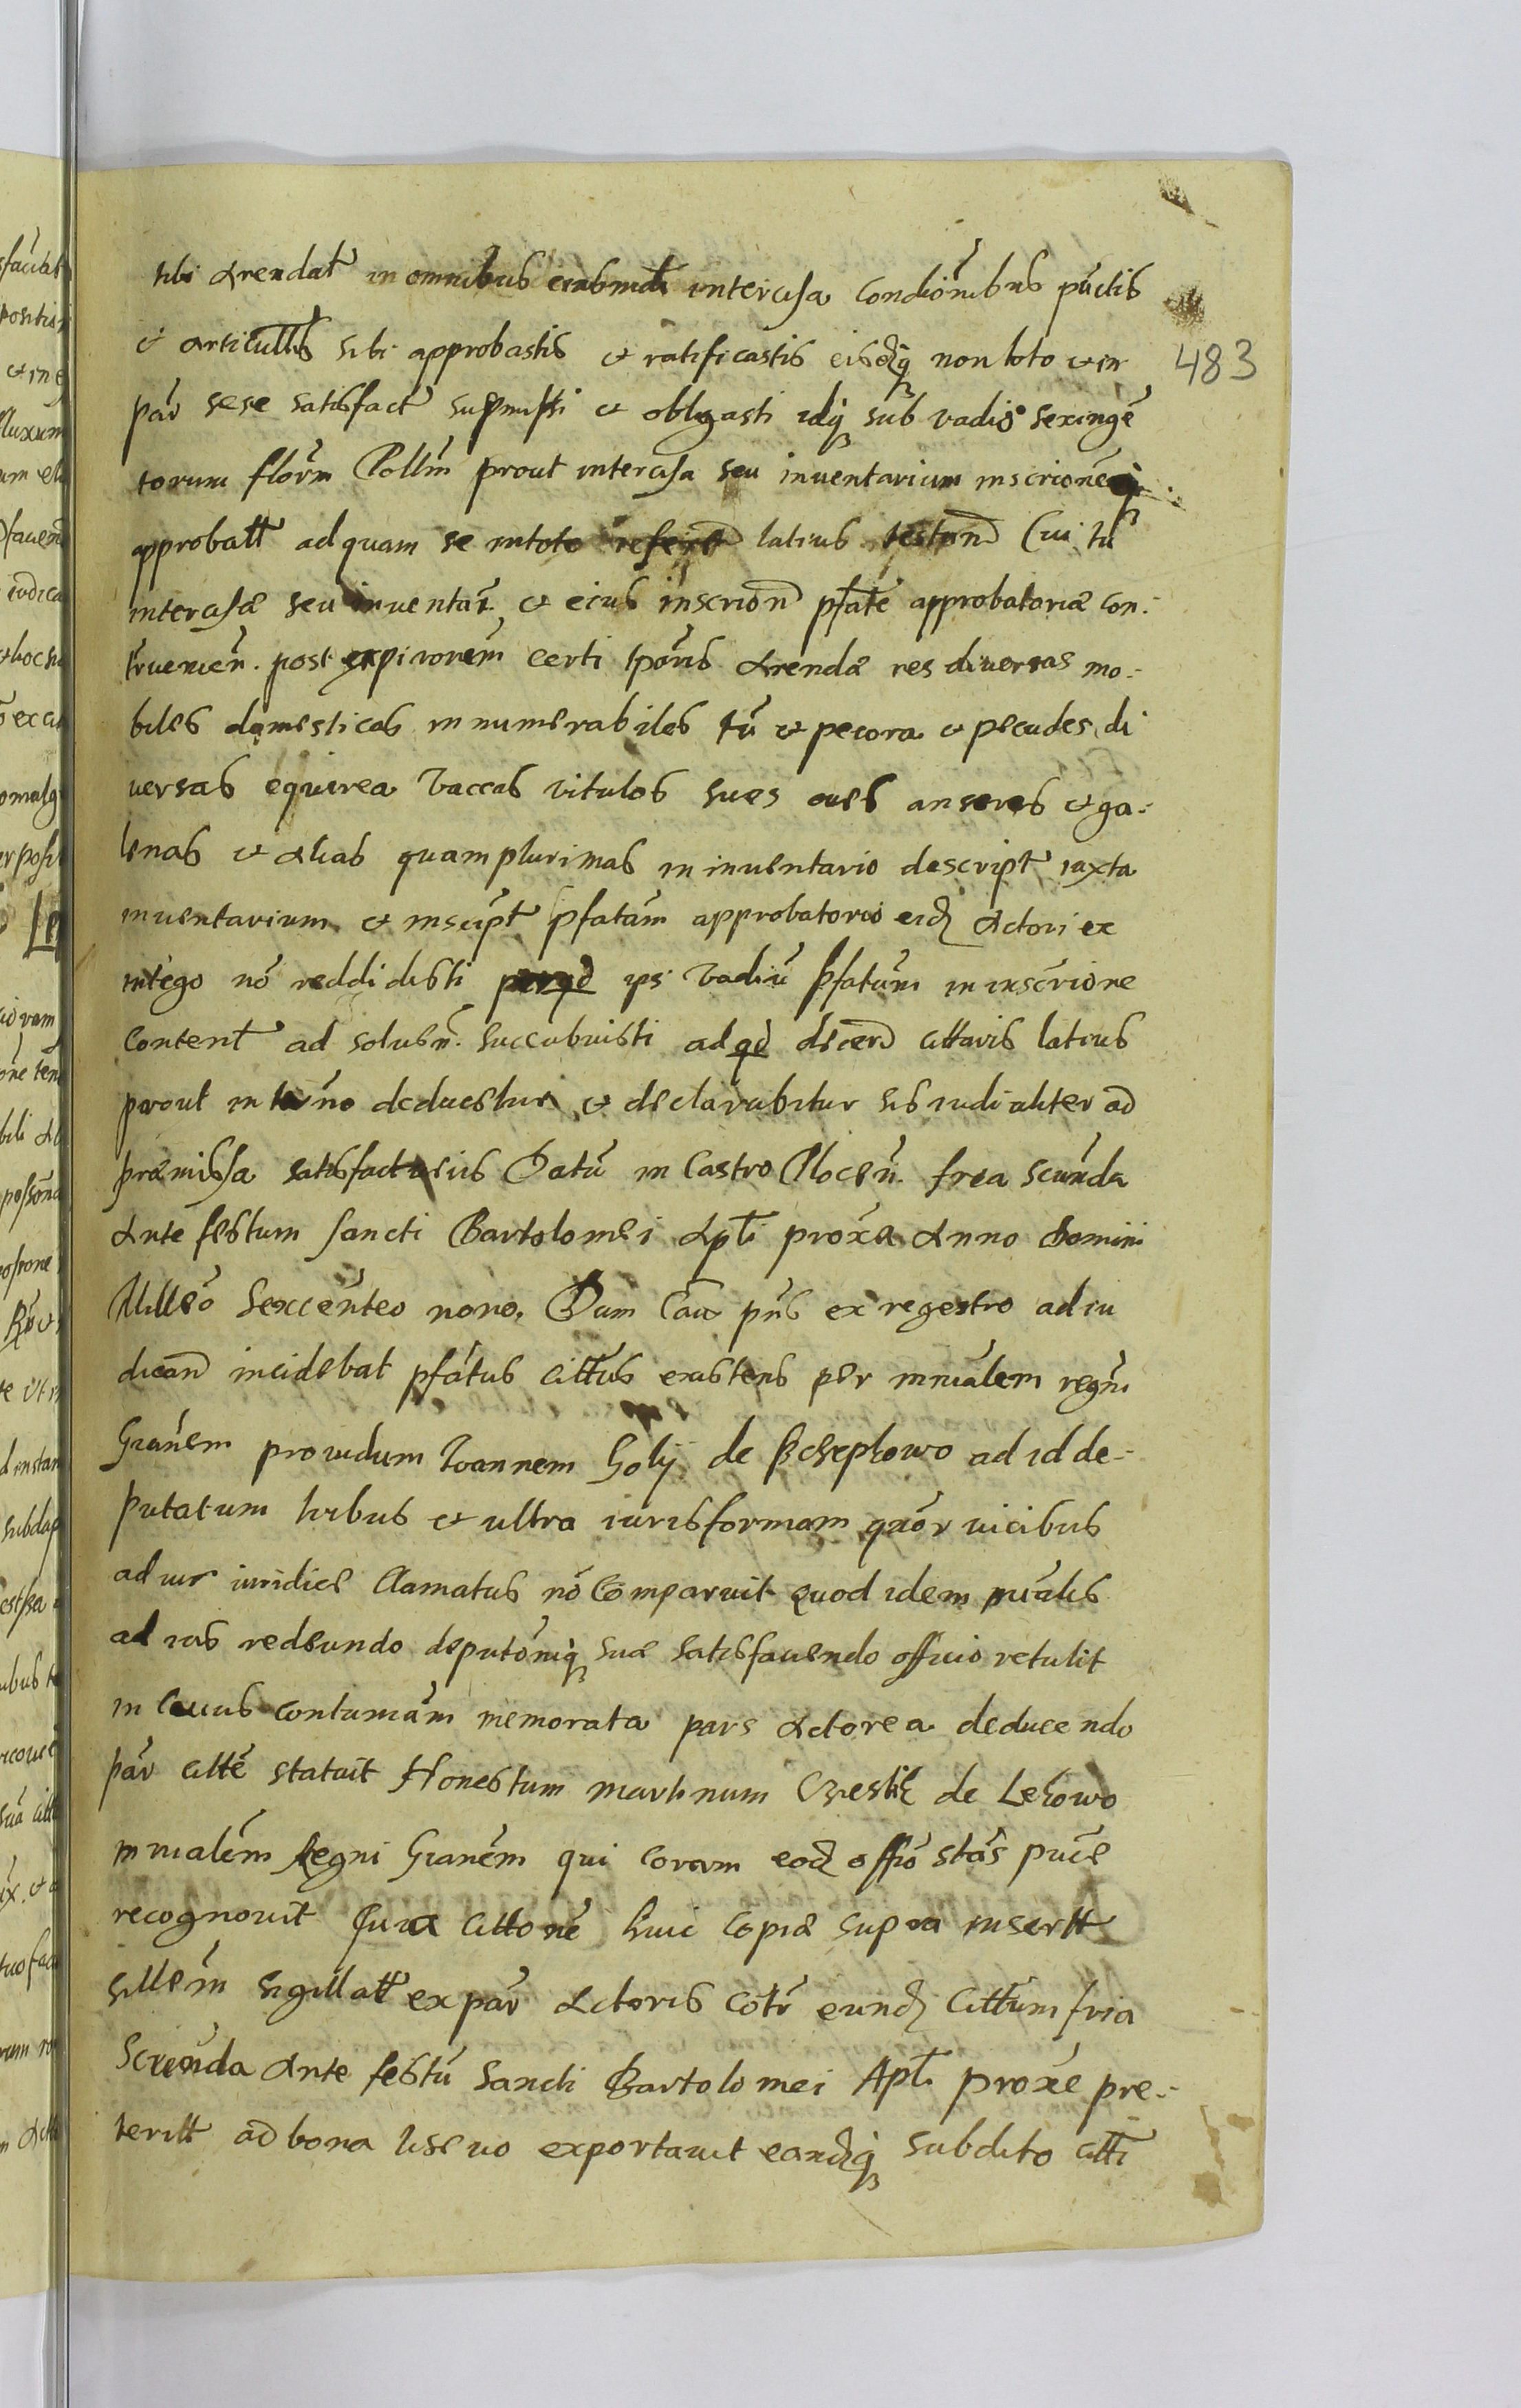 sibi Arendat in omnibus eiusmdi intercisa condiōnibus pūctis
et articulis sibi approbastis et ratificastis eisdqʒ non toto et in
483
pār sese satisfact supmisti et obligasti idqʒ sub vadio sexingē
torum florm Pollm prout intercisa seu inventarium inscrionē
approbatt ad quam se intoto refert latius testand Cui tū
intercisæ seu inventar et eius inscriond pfate approbatoriæ con-
travenien. post expirorem certi tporis Arendæ res diversas mo-
biles domesticas innumerabiles tū et pecora et pecudes di
versas equirea vaccas vitulos sues oves anseres et ga-
linas et alias quamplurimas in inventario descript iuxta
inventarium et inscript pfatam approbatorio eid Actori ex
intego nō reddidisti ps vadiū pfatum in inscrione
content ad solusn. succubuisti ad qd dicend cittaris latius
prout in termno deducetur et declarabitur sis iudialiter ad
præmissa satisfacturus Datū in Castro Plocen. frea scunda
Ante festum sancti Bartolomei Apli proxa Anno domini
Milleō sexcenteo nono. Dum Cau pns ex regestro ad iu
dicand incidebat pfatus cittus existens per mnialem regni
Granem providum Joannem Goly de ad id de-
putatum tribus et ultra iuris formam quor vicibus
ad ius iuridice clamatus nō comparuit quod idem mialis
ad ius redeundo deputōniqʒ suæ satisfaciendo officio retulit
in cuius contumām memorata pars Actorea deducendo
pār citte statuit Honestum martinum de Lezowo
mnialem Regni Granem qui coram eod offio stās puce
recognovit Quia cittonē huic copiæ supra insertt
sillem sigillatt ex pār Actoris cōtr eund cittum fria
Scunda Ante festū Sancti Bartolomei Apli proxe pre-
teritt ad bona Liseuo exportavit eandqʒ subdito citti